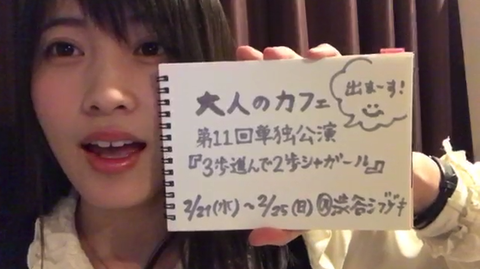 大人のカフェ
出まーす!
第11回単独公演
『3歩進んで2歩シャガール』
2/21(水)~2/25(日)@渋谷シブゲキ